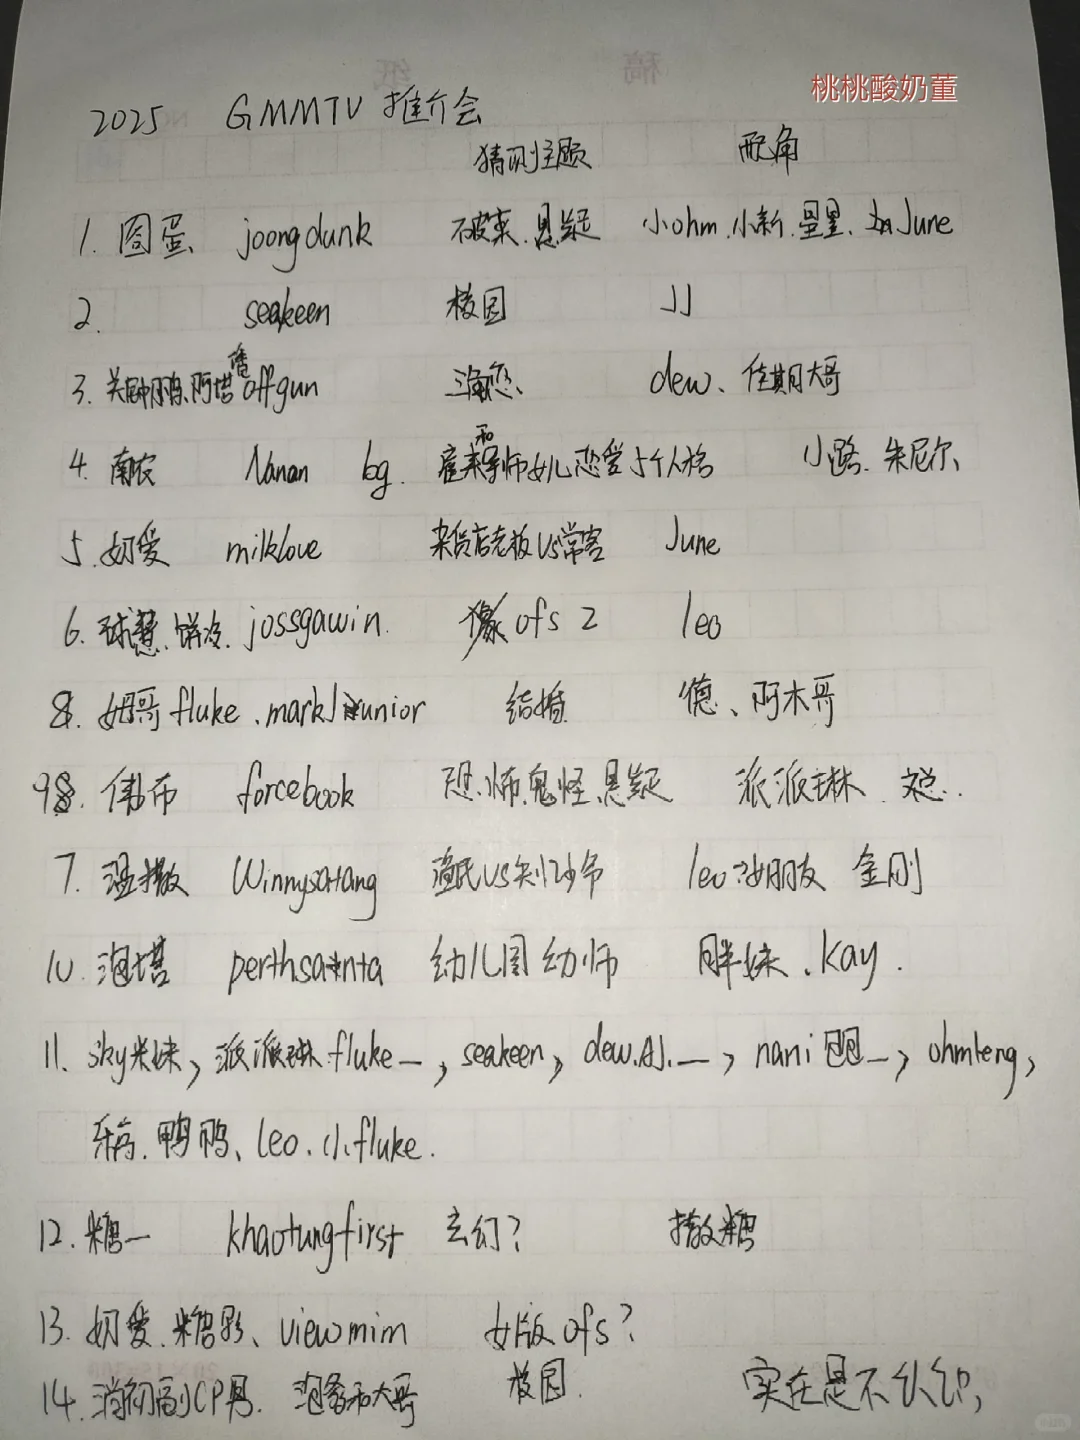 桃桃酸奶董
2025 GMMTV 推介会
猜测主题 配角
1. 圆蛋 joongdunk 不破案.悬疑 小ohm.小新.星星. June
2. seakeen 校园 JJ
3. 阿塔 offgun dew、佳期大哥
4. 南农 Nanon bg. 和导师女儿恋爱 5个人格 小路.朱尼尔
5. 奶爱 milklove 杂货店老板VS常客 June
6. jossgawin. 像 ofs 2 leo
8. 姐哥 fluke .markJunior 结婚 德、阿木哥
9. 伟布 forcebook 恐怖.鬼怪.悬疑 派派琳
7. 温撒 Winnysatang 渔民VS leo 女朋友 金刚
10. 泡塔 perthsanta 幼儿园幼师 胖妹、kay.
11. sky米妹, 派派琳.fluke_, seakeen, dew.AJ._, nani _, ohmleng,
鸭鸭、leo.小fluke.
12. 糖一 khaotungfirst 玄幻? 撒糖
13. 奶爱.糖影、viewmim 女版ofs?
14. 副CP男. 和大哥 校园. 实在是不认识,